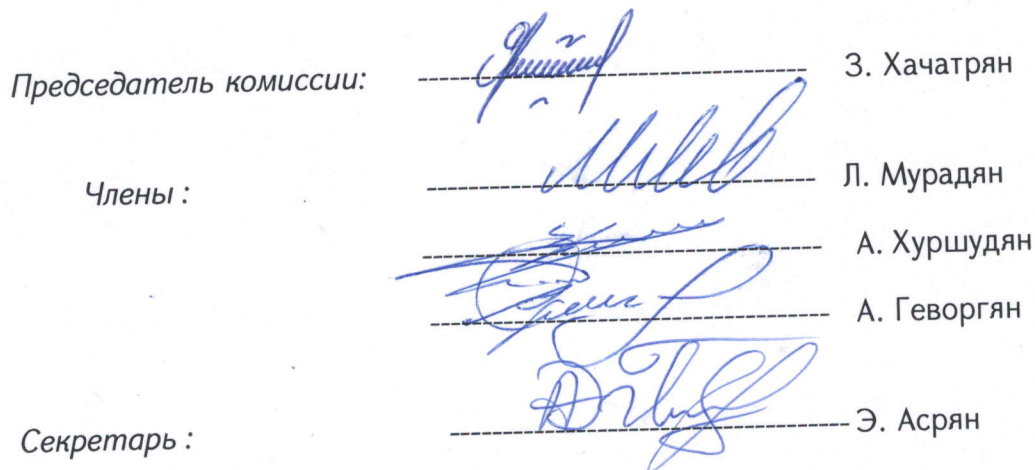 Председатель комиссии: З. Хачатрян
Члены : Л. Мурадян
А. Хуршудян
А. Геворгян
Секретарь : Э. Асрян